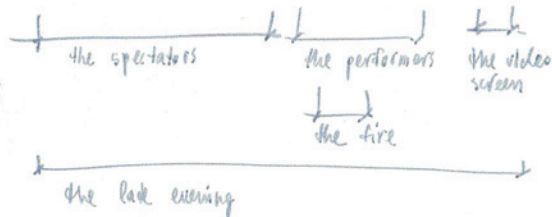 the spectators
the performers
the video
screen
the fire
the late evening